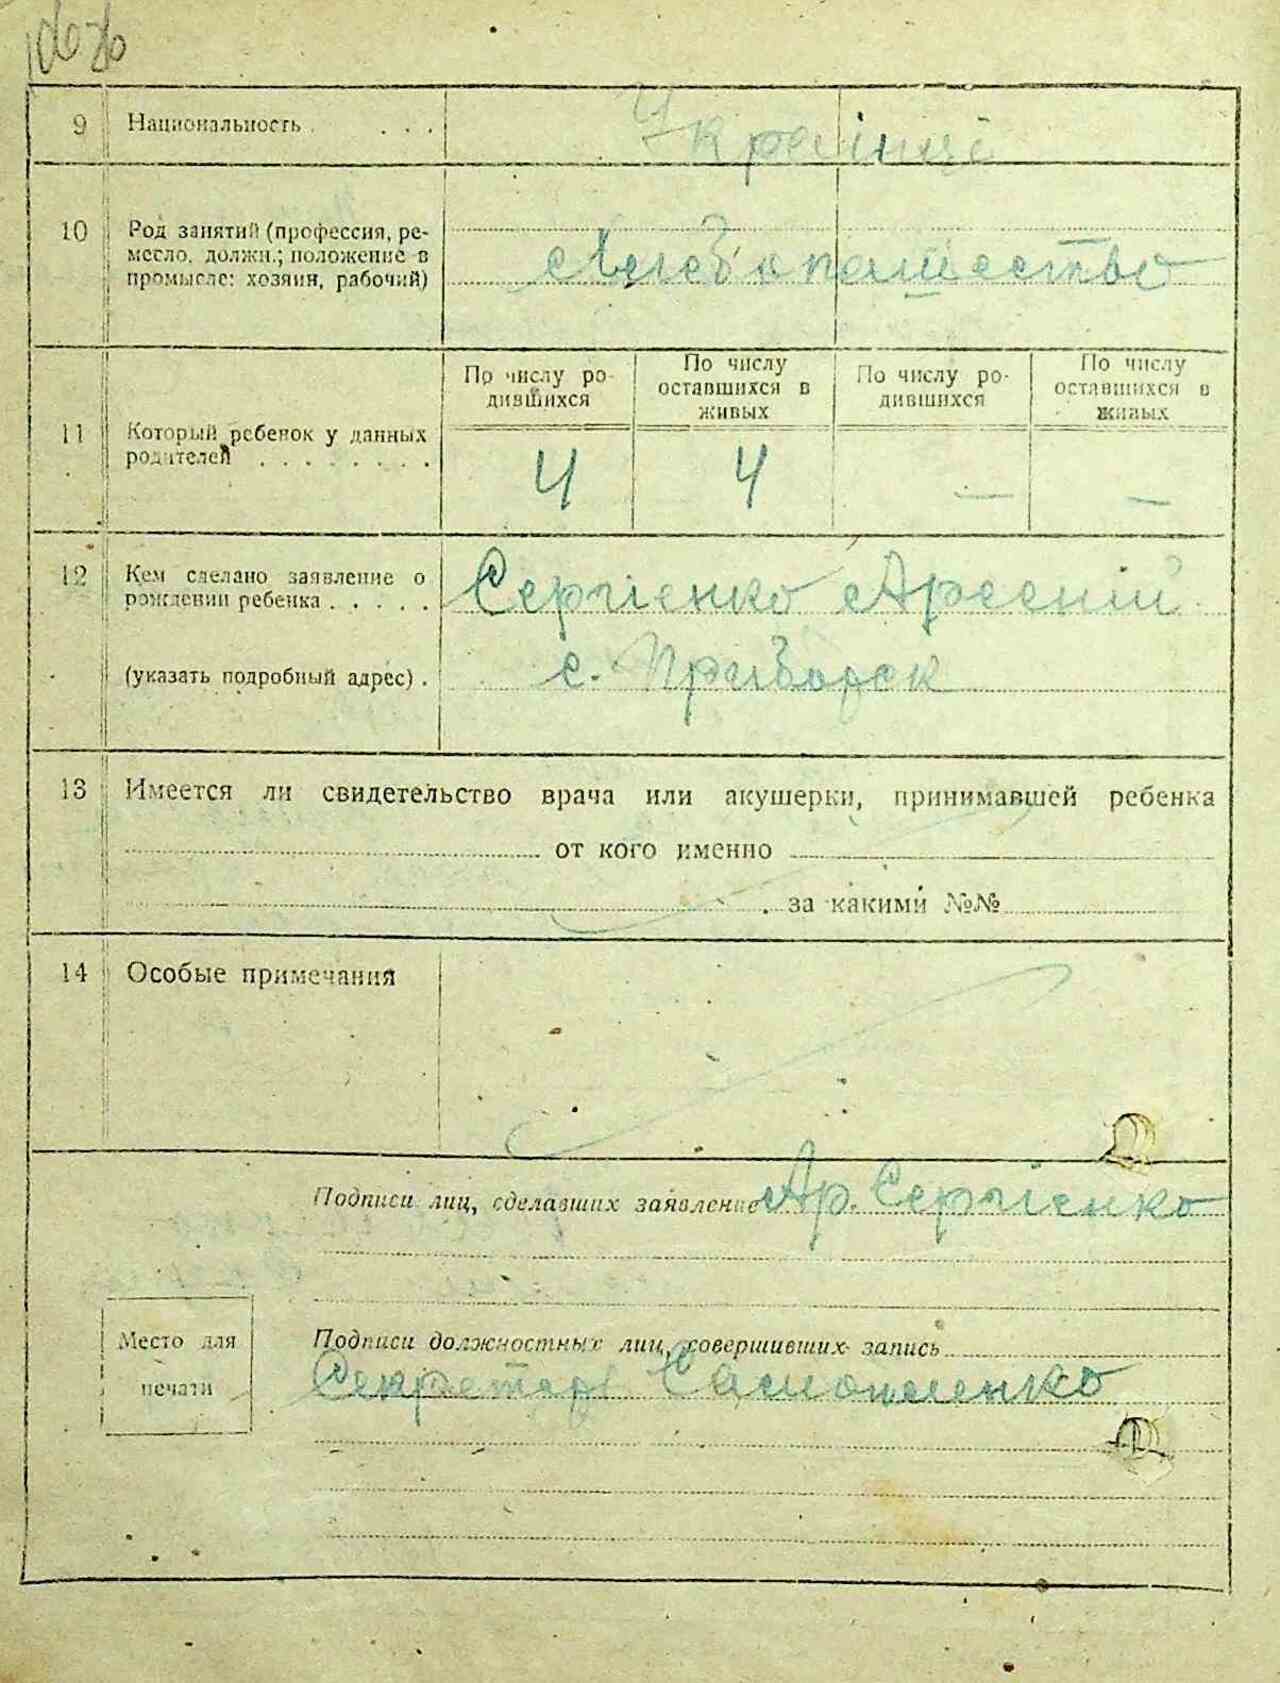 9 Национальность . . . . Українці
10 Род занятий (профессия, ре-
месло, должн.; положение в
промысле: хозяин, рабочий)
Хлебопашество
По числу ро-
дившихся
По числу
оставшихся в
живых
По числу ро-
дившихся
По числу
оставшихся в
живых
11 Который ребенок у данных
родителей . . . . . . . .
4 4 — —
12 Кем сделано заявление о
рождении ребенка . . . . .
Сергієнко Арсеній
(указать подробный адрес) .
с.
13 Имеется ли свидетельство врача или акушерки, принимавшей ребенка
от кого именно
за какими №№
14 Особые примечания
Подписи лиц, сделавших заявление Ар. Сергієнко
Место для
печати
Подписи должностных лиц, совершивших запись
Секретарь